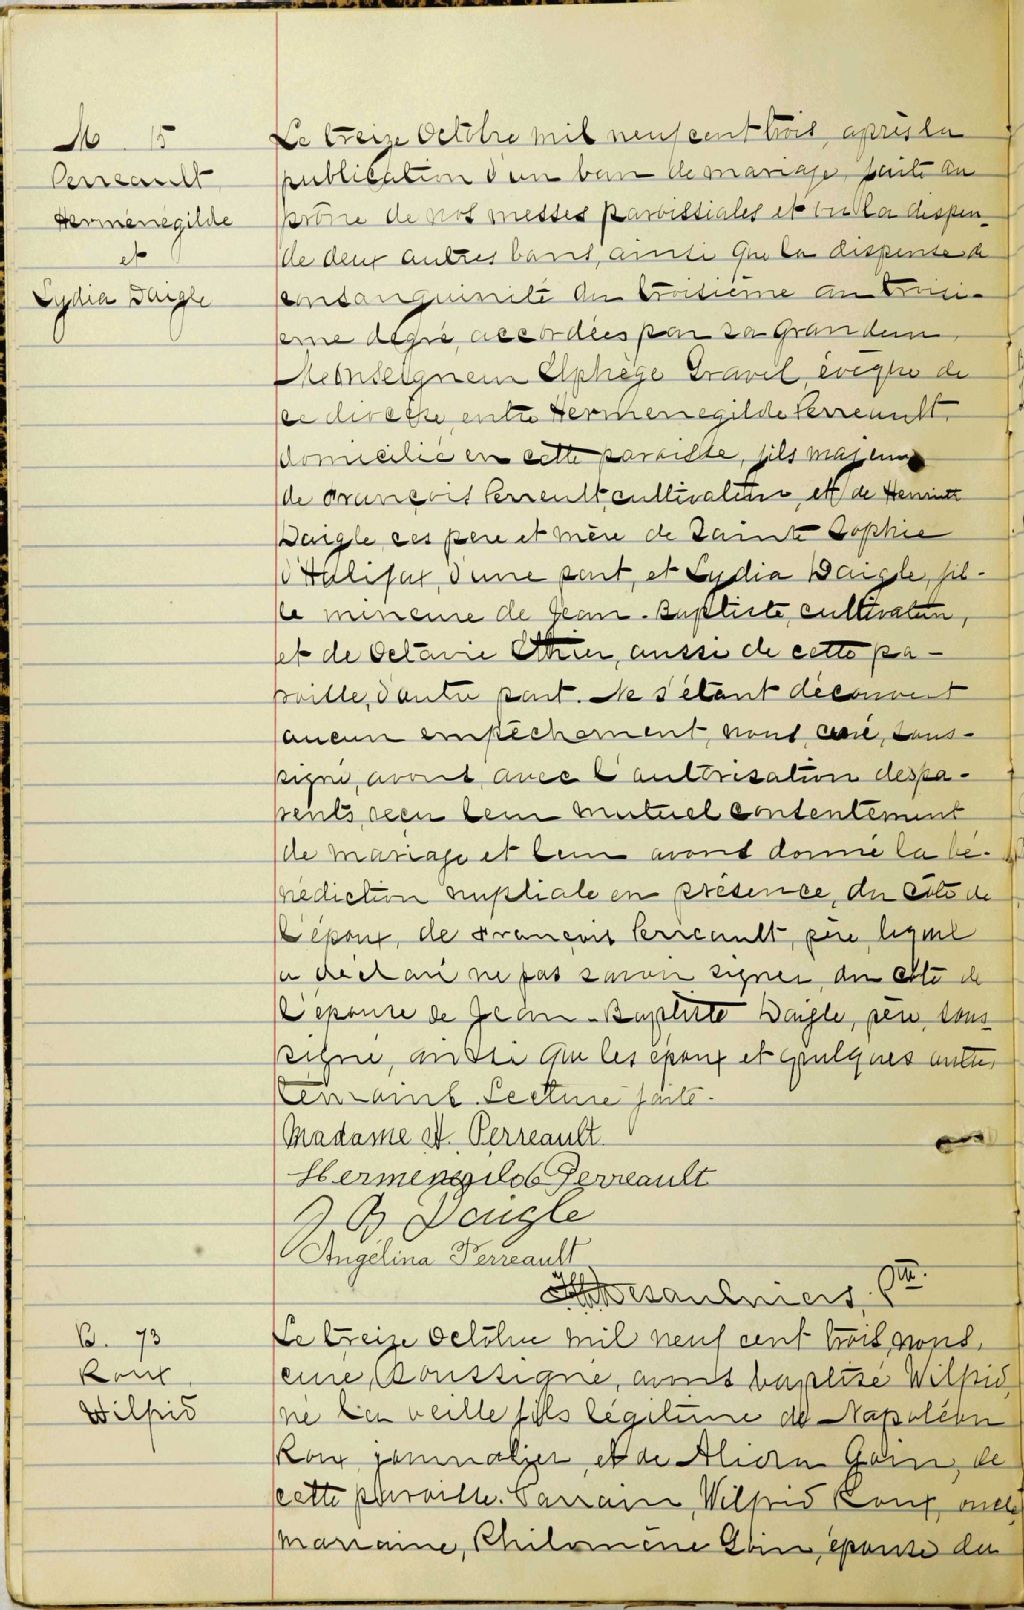 M. 15
Perreault
Herménégilde
et
Lydia Daigle
Le treize Octobre mil neuf cent trois, après la
publication d'un ban de mariage, faite au
prône de nos messes paroissiales et vu la dispen-
de deux autres bans, ainsi que la dispense de
consanguinité du troisième au troisi-
ème degré, accordées par sa Grandeur,
Monseigneur Elphège Gravel, évêque de
ce diocèse, entre Herménégilde Perreault,
domicilié en cette paroisse, fils majeur
de François Perreault, cultivateur, et de Henriette
Daigle, ces père et mère de Sainte Sophie
d'Halifax, d'une part, et Lydia Daigle, fil-
le mineure de Jean-Baptiste, cultivateur,
et de Octavie Ethier, aussi de cette pa-
roisse, d'autre part. Ne s'étant découvert
aucun empêchement, nous, curé, sous-
signé, avons, avec l'autorisation des pa-
rents, reçu leur mutuel consentement
de mariage et leur avons donné la bé-
nédiction nuptiale en présence, du côté de
l'époux, de François Perreault, père, lequel
a déclaré ne pas savoir signer, du côté de
l'épouse de Jean-Baptiste Daigle, père, sous-
signé, ainsi que les époux et quelques autres
témoins. Lecture faite.
Madame H. Perreault.
Herménégilde Perreault
J B Daigle
Angélina Perreault
Desaulniers, Ptre.
B. 73
Roux,
Wilfrid
Le treize Octobre mil neuf cent trois, nous,
curé, soussigné, avons baptisé Wilfrid,
né la veille fils légitime de Napoléon
Roux, journalier, et de Goin, de
cette paroisse. Parrain, Wilfrid Roux, oncle,
marraine, Philomène Goin, épouse du